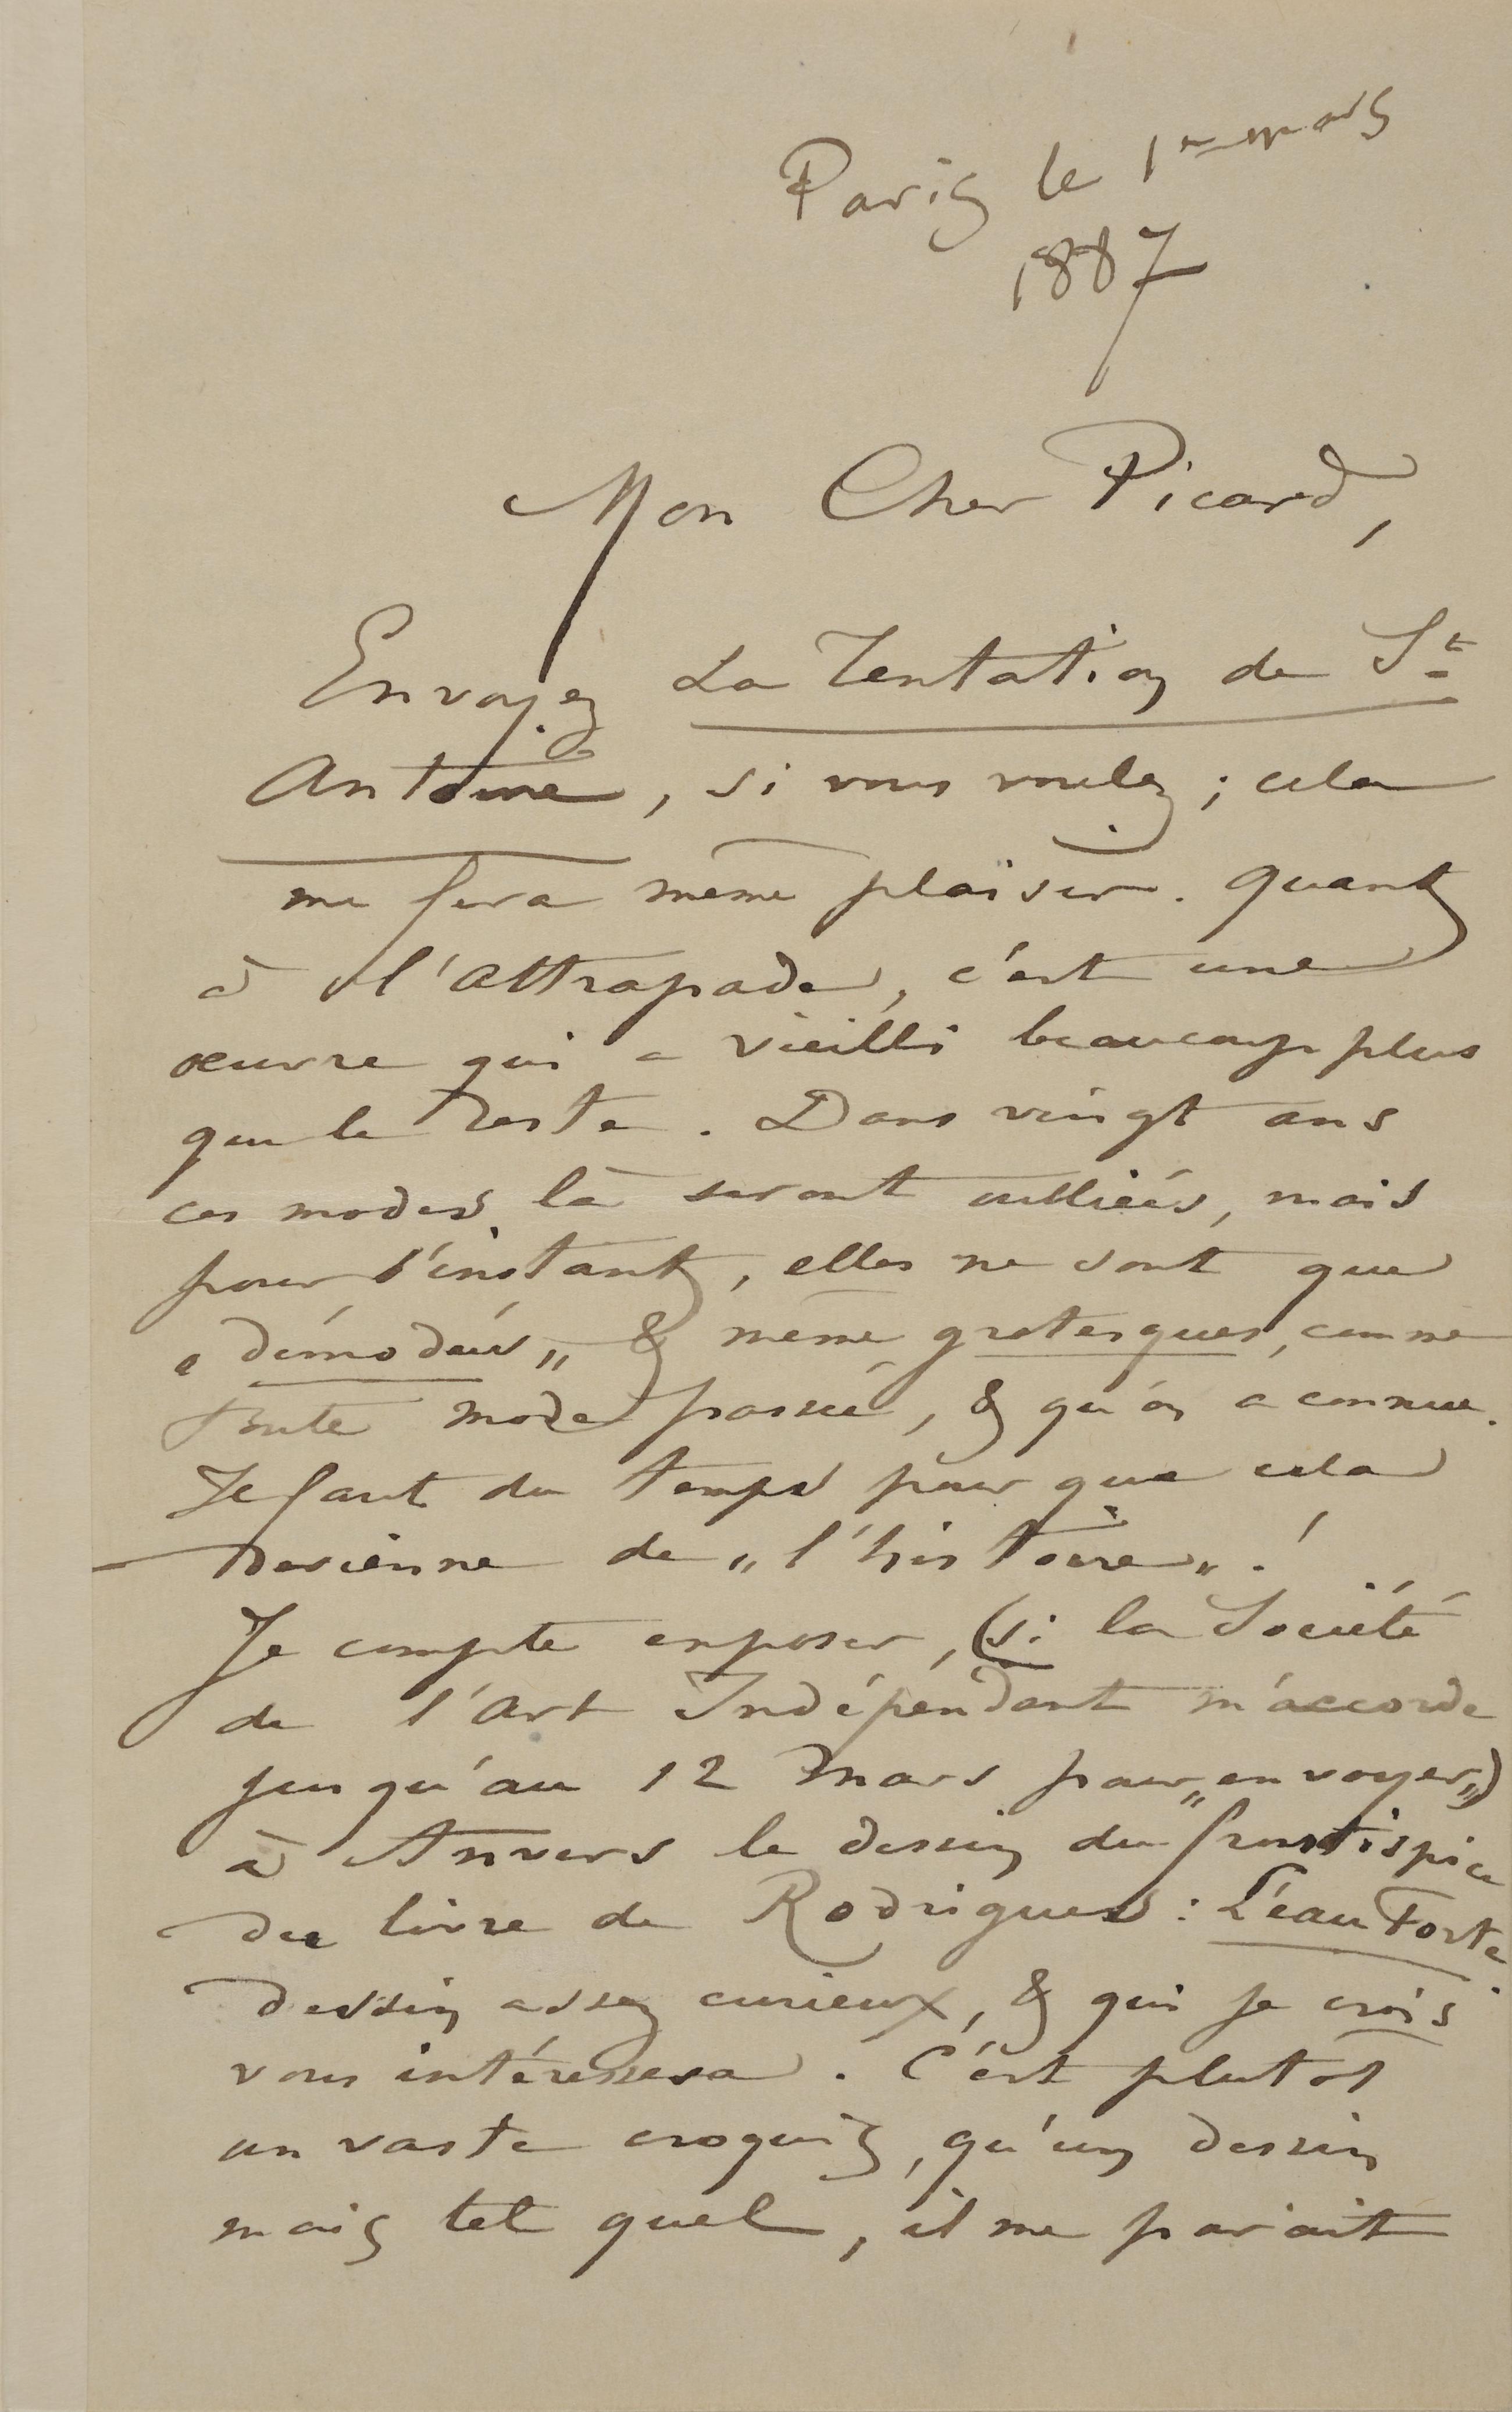 Paris le 1er mars
1887
Mon Cher Picard,
Envoyez La Tentation de St
Antoine, si vous voulez ; cela
me fera même plaisir. Quant
à l'Attrapade, c'est une
œuvre qui a vieilli beaucoup plus
que le reste. Dans vingt ans
ces modes là seront oubliées, mais
pour l'instant, elles ne sont que
« démodées » & même grotesques, comme
toute mode passée, & qu'on a connue.
Il faut du temps pour que cela
devienne de „l'histoire„ !
Je compte exposer, (si la Société
de l'Art Indépendant m'accorde
jusqu'au 12 Mars pour „envoyer„)
à Anvers le dessin du frontispice
du livre de Rodrigues : L'eau Forte
dessin assez curieux, & qui je crois
vous intéressera. C'est plutot
un vaste croquis, qu'un dessin
mais tel quel, il me parait